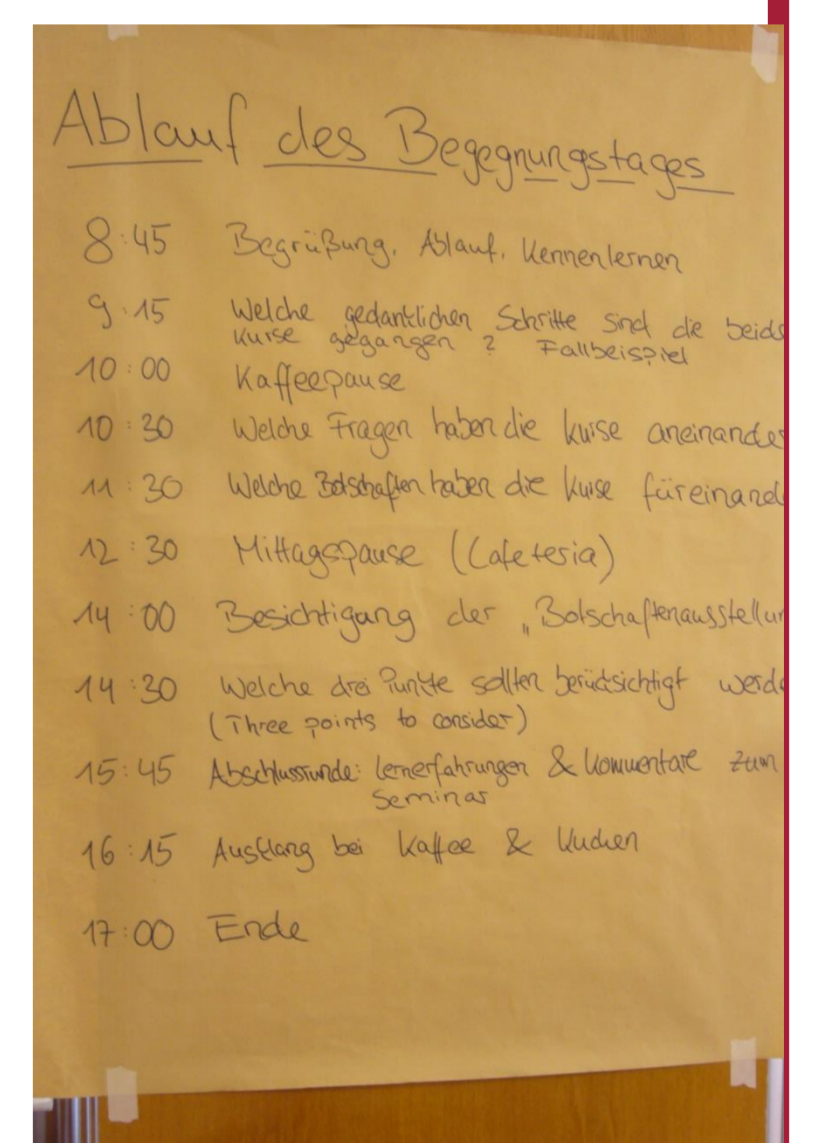 Ablauf des Begegnungstages
8:45 Begrüßung, Ablauf, Kennenlernen
9:15 Welche gedanklichen Schritte sind die beide
Kurse gegangen? Fallbeispiel
10:00 Kaffeepause
10:30 Welche Fragen haben die Kurse aneinander
11:30 Welche Botschaften haben die Kurse füreinand
12:30 Mittagspause (Cafeteria)
14:00 Besichtigung der "Botschaftenausstellun
14:30 Welche drei Punkte sollten berücksichtigt werde
(Three points to consider)
15:45 Abschlussrunde: Lernerfahrungen & Kommentare zum
Seminar
16:15 Ausklang bei Kaffee & Kuchen
17:00 Ende